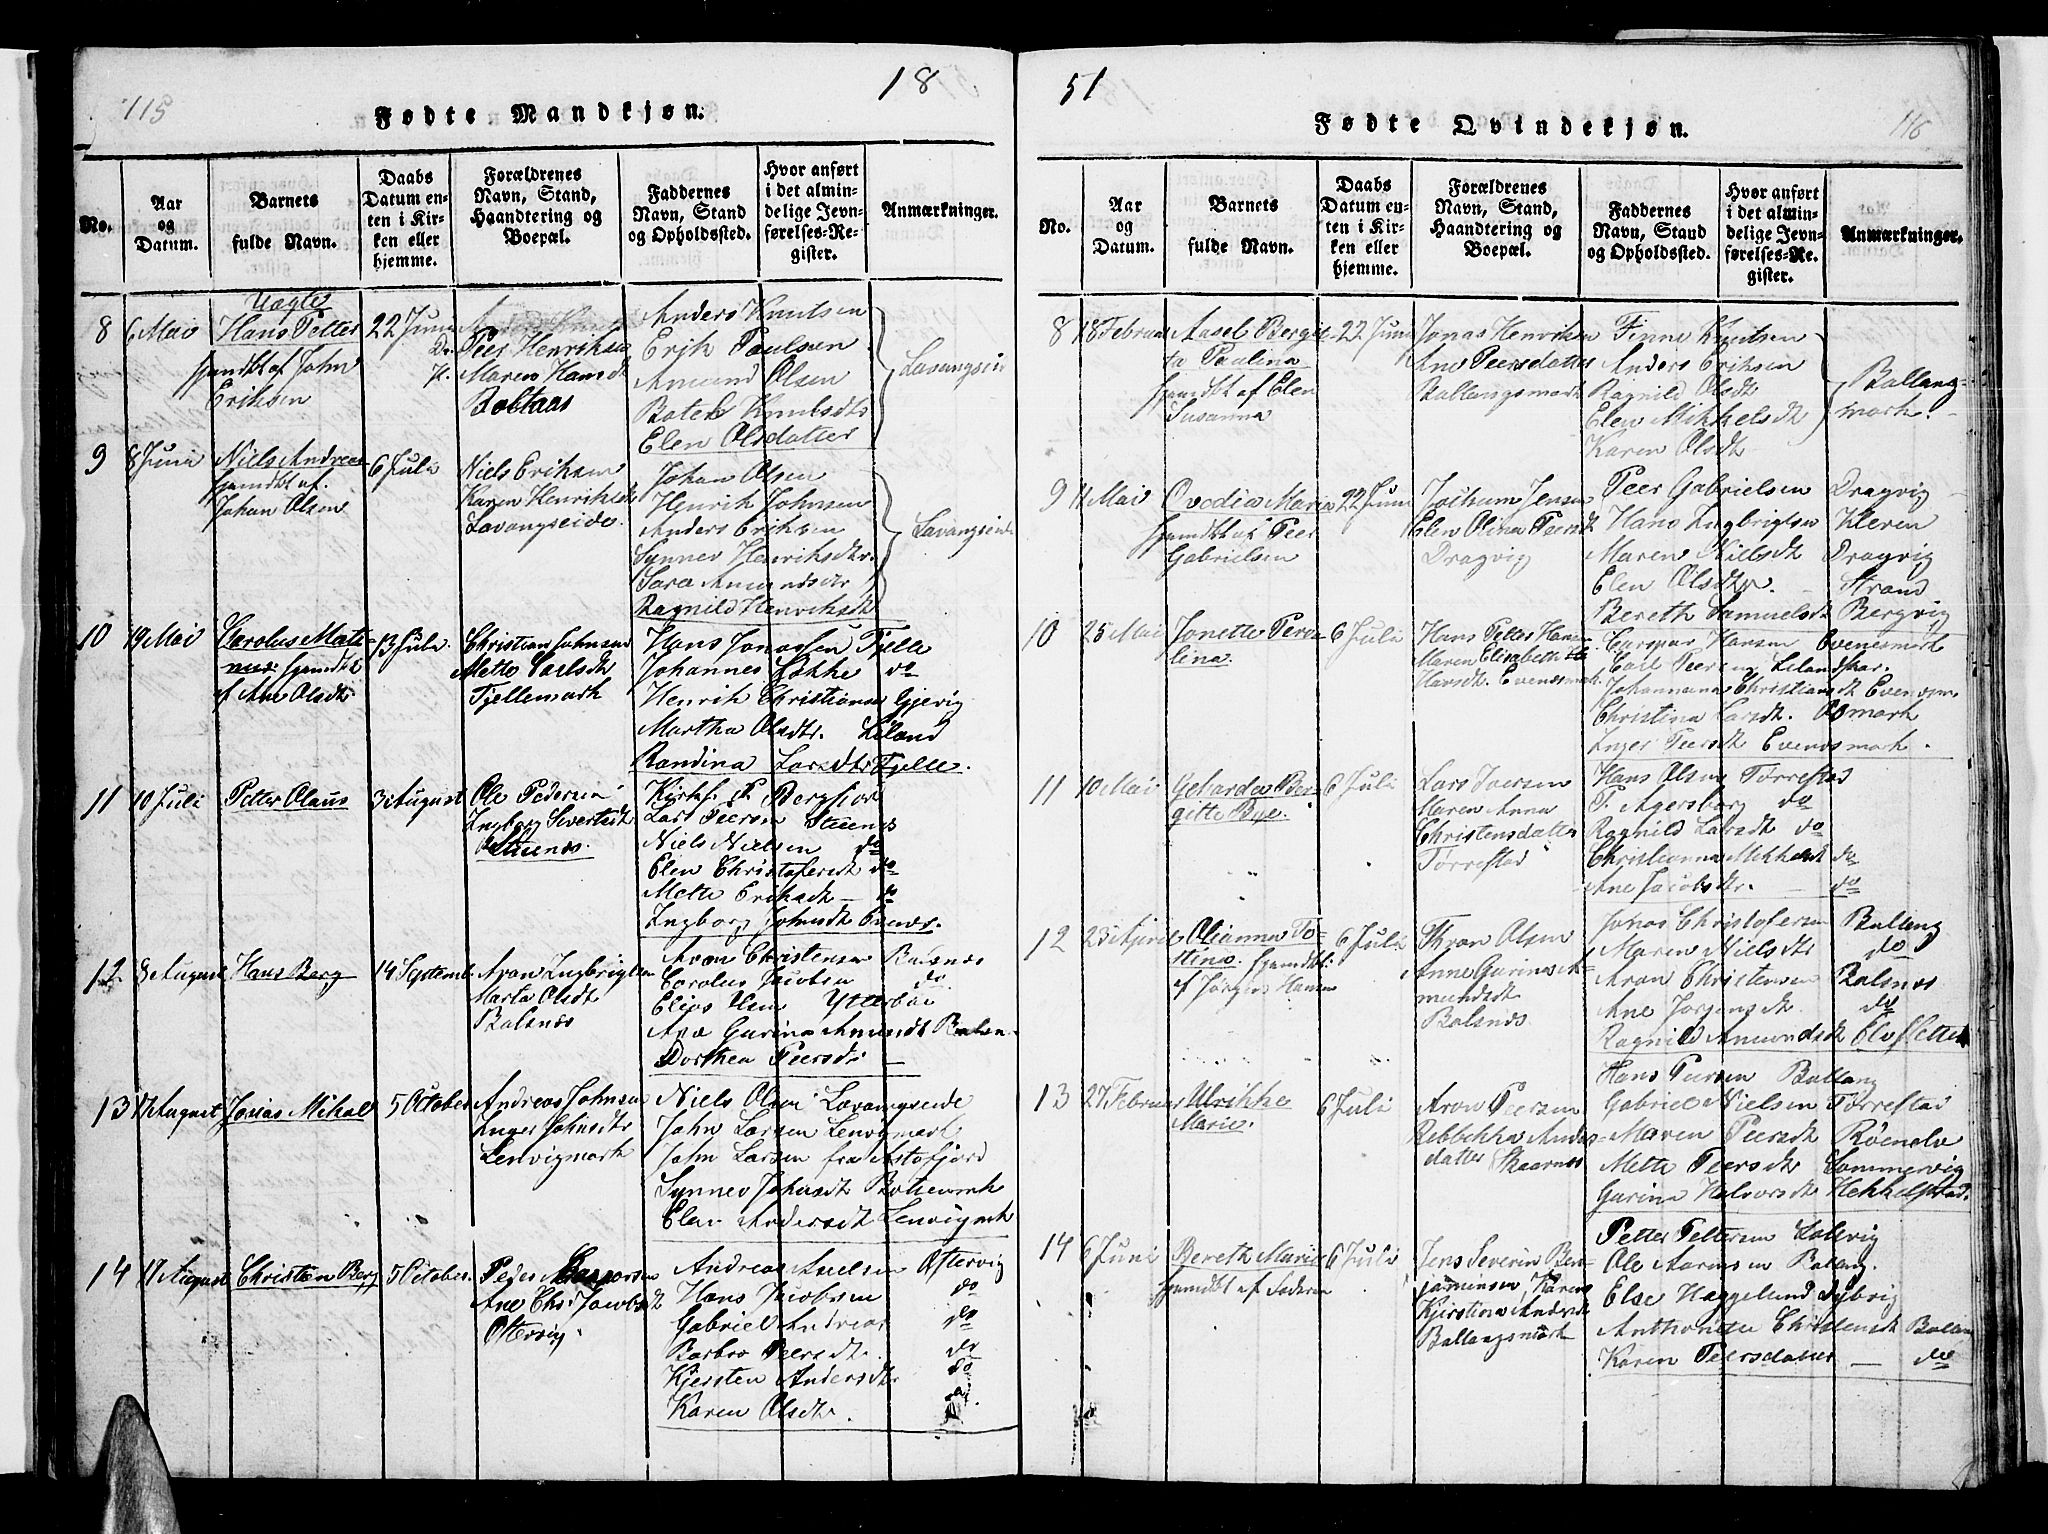 115
18
Fødte Mandkjøn.
No.
Aar og Datum.
Barnets fulde Navn.
Daabs Datum enten i Kirken eller hjemme.
Forældrenes Navn, Stand, Haandtering og Boepæl.
Faddernes Navn, Stand og Opholdssted.
Hvor anført i det almindelige Jevnførelses-Register.
Anmærkninger.
8
6 Mai
Uægte
Hans Petter
hjemdbt af John
Eriksen
22 Juni
Peer Henriksen
Maren Hansdt
Boltaas
Anders Knutsen
Erik Paulsen
Amund Olsen
Knutsdtr
Elen Olsdatter
Lavangseid
9
8 Juni
Niels Andreas
hjemdbt af
Johan Olsen
6 Juli
Niels Eriksen
Karen Henriksdt
Lavangseide.
Johan Olsen
Henrik Johnsen
Anders Eriksen
Synnev Henriksdtr.
Sara Amundsdtr
Ragnild Henriksdt
Lavangseide
10
19 Mai
Carolus Mati-
nus. hjemdbt
af Ane Olsdtr
13 Juli
Christian Johnsen
Mette Carlsdt
Fjellemark
Hans Jonassen Fjelle
Johannes Løkke do
Henrik Christiansen Gjevig
Martha Olsdtr. Leiland
Randina Larsdtr Fjelle.
11
10 Juli
Petter Olaus
3 August
Ole Pedersen
Ingborg Sivertsdt
Stuenes.
Kirks. P. Bergfiord
Lars Peersen Stuenes
Niels Nielsen do
Elen Christofersdt do
Mette Eriksdt - do
Ingborg Johnsdt Evenes.
12.
8 August
Hans Berg
14 Septemb.
Aron Ingbrigtsen
Marta Olsdt
Balsnes
Aron Christensen Balsnes
Carolus Jacobsen do
Elias Olsen
Ane Gurina Amundsdt
Dorthea Peersdtr
13
17 August
Jonas Mikal
5 October
Andreas Johnsen
Inger Johnsdtr
Lenvigmark
Niels Olsen Lavangseide
John Larsen Lenvigmark
John Larsen fra Astafjord
Synnev Johnsdt
Elen Andersdt Lenvigmk
14
17 August
Christen Berg
5 October.
Peder
Ane Chr: Jacobsdt
Ottervig
Andreas Axelsen Ottervig
Hans Jacobsen do
Gabriel Andreas do
Barbro Peersdt. do
Kjersten Andersdtr do
Karen Olsdtr.
51
116
Fødte Qvindekjøn.
No.
Aar og Datum.
Barnets fulde Navn.
Daabs Datum enten i Kirken eller hjemme.
Forældrenes Navn, Stand, Haandtering og Boepæl.
Faddernes Navn, Stand og Opholdssted.
Hvor anført i det almindelige Jevnførelses-Register.
Anmærkninger.
8
18 Februar
Aasel Bergit-
ta Paulina
hjemdbt af Elen
Susanna
22 Juni
Jonas Henriksen
Ane Peersdatter
Ballangsmark
Finne Knutsen
Anders Eriksen
Ragnild Olsdt
Elen Mikkelsdt
Karen Olsdt
Ballang-
mark.
9
11 Mai
Ovedia Maria
hjemdbt af Peer
Gabrielsen
22 Juni
Jochum Jensen
Elen Olina Peersdt
Dragvig
Peer Gabrielsen Dragvig
Hans Ingbrigtsen Kleven
Maren Nielsdt Dragvig
Elen Olsdtr. Strand
Bereth Samuelsdt Bergvig
10
25 Mai
Jonette Pero-
lina.
6 Juli
Hans Petter Hansen
Maren Elisabeth
Hansdt. Evenesmark.
Caspar Hansen Evenesmark
Carl Peersen
Johannana Christiansdt Evenesm
Christina Larsdt. Osmark
Inger Peersdt Evenesmark.
11
10 Mai
Geharda Ber-
gitte Bye.
6 Juli
Lars Iversen
Maren Anna
Christensdatter
Tørrestad
Hans Olsen Tørrestad
P. Agersborg do
Ragnild Larsdt do
Christianna Mikkelsdt do
Ane Jacobsdtr. do
12
23 April
Olianna To-
stine. hjemdbt.
af Jørgen Hansen
6 Juli
Thron Olsen
Anne Gurina A-
mundsdt
Balsnes
Jonas Christofersen Ballang
Maren Nielsdtr do
Aron Christensen Balsnes
Ane Jørgensdt do
Ragnild Amundsdt
13
27 Februar
Ulrikke
Marie.
6 Juli
Aron Peersen
Rebbekka Anders-
datter Skaarnes
Hans Peersen Ballang
Gabriel Nielsen Tørrestad
Maren Peersdt
Mette Peersdt Sommervig
Gurina Halvorsdt Hekkelstad.
14
6 Juni
Bereth Marie
hjemdbt af Faderen
6 Juli
Jens Severin Ben-
jaminsen, Karen
Kjerstina Andersdt
Ballangsmark
Petter Pettersen
Ole Aronsen Balang.
Else Haggelund Dybvig
Anthonette Christensdt Balang
Karen Peersdatter - do